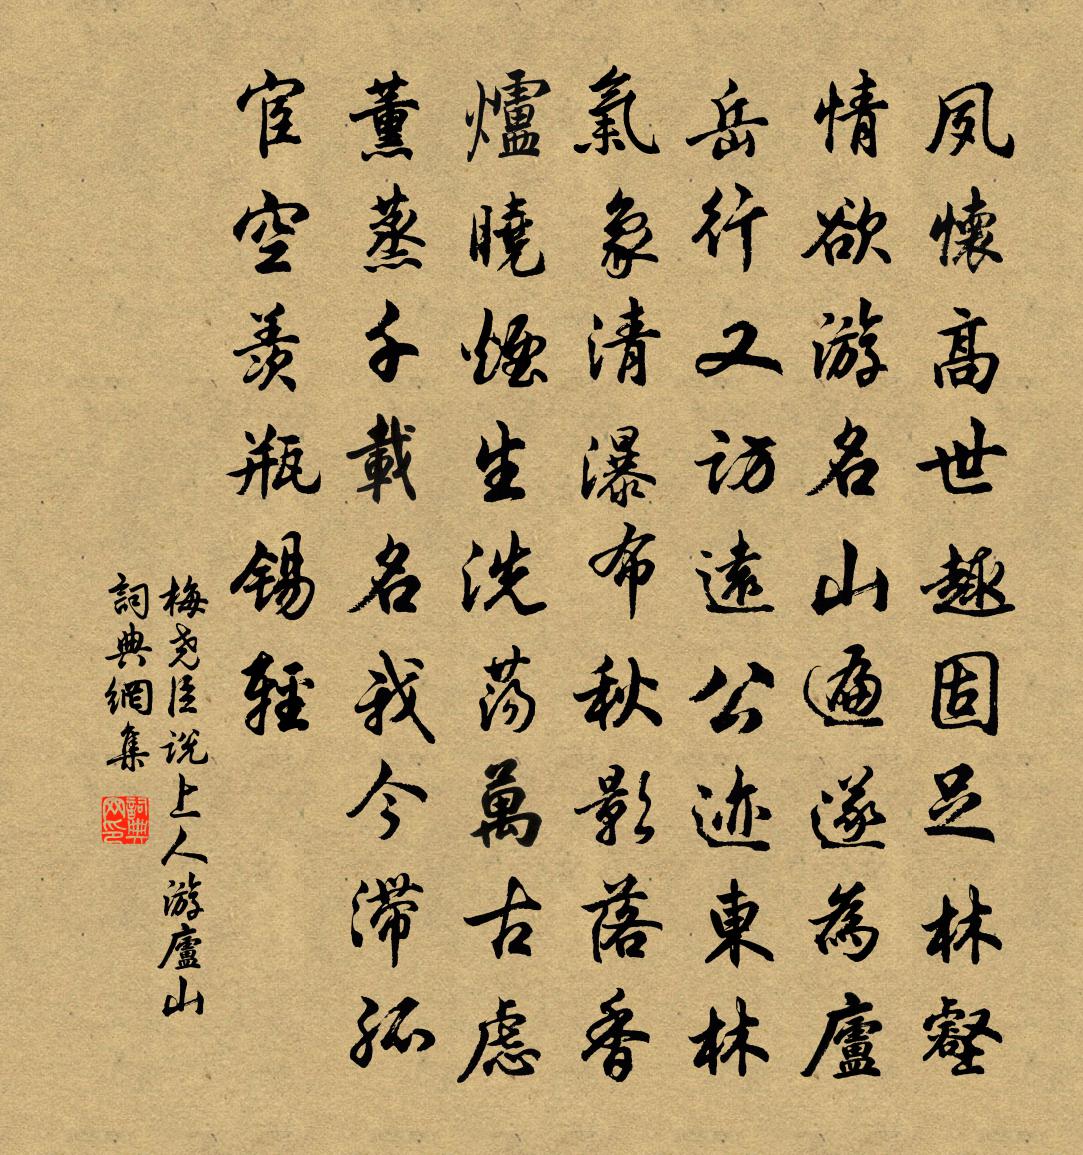 夙懷高世趣固足林壑
情欲游名山遍遂為廬
岳行又訪遠公迹東林
氣象清瀑布秋影落香
爐曉煙生洗蕩萬古慮
薰蒸千載名我今滯孤
宦空羡瓶錫輕
梅堯臣说上人游廬山
詞典網集
詞典网印